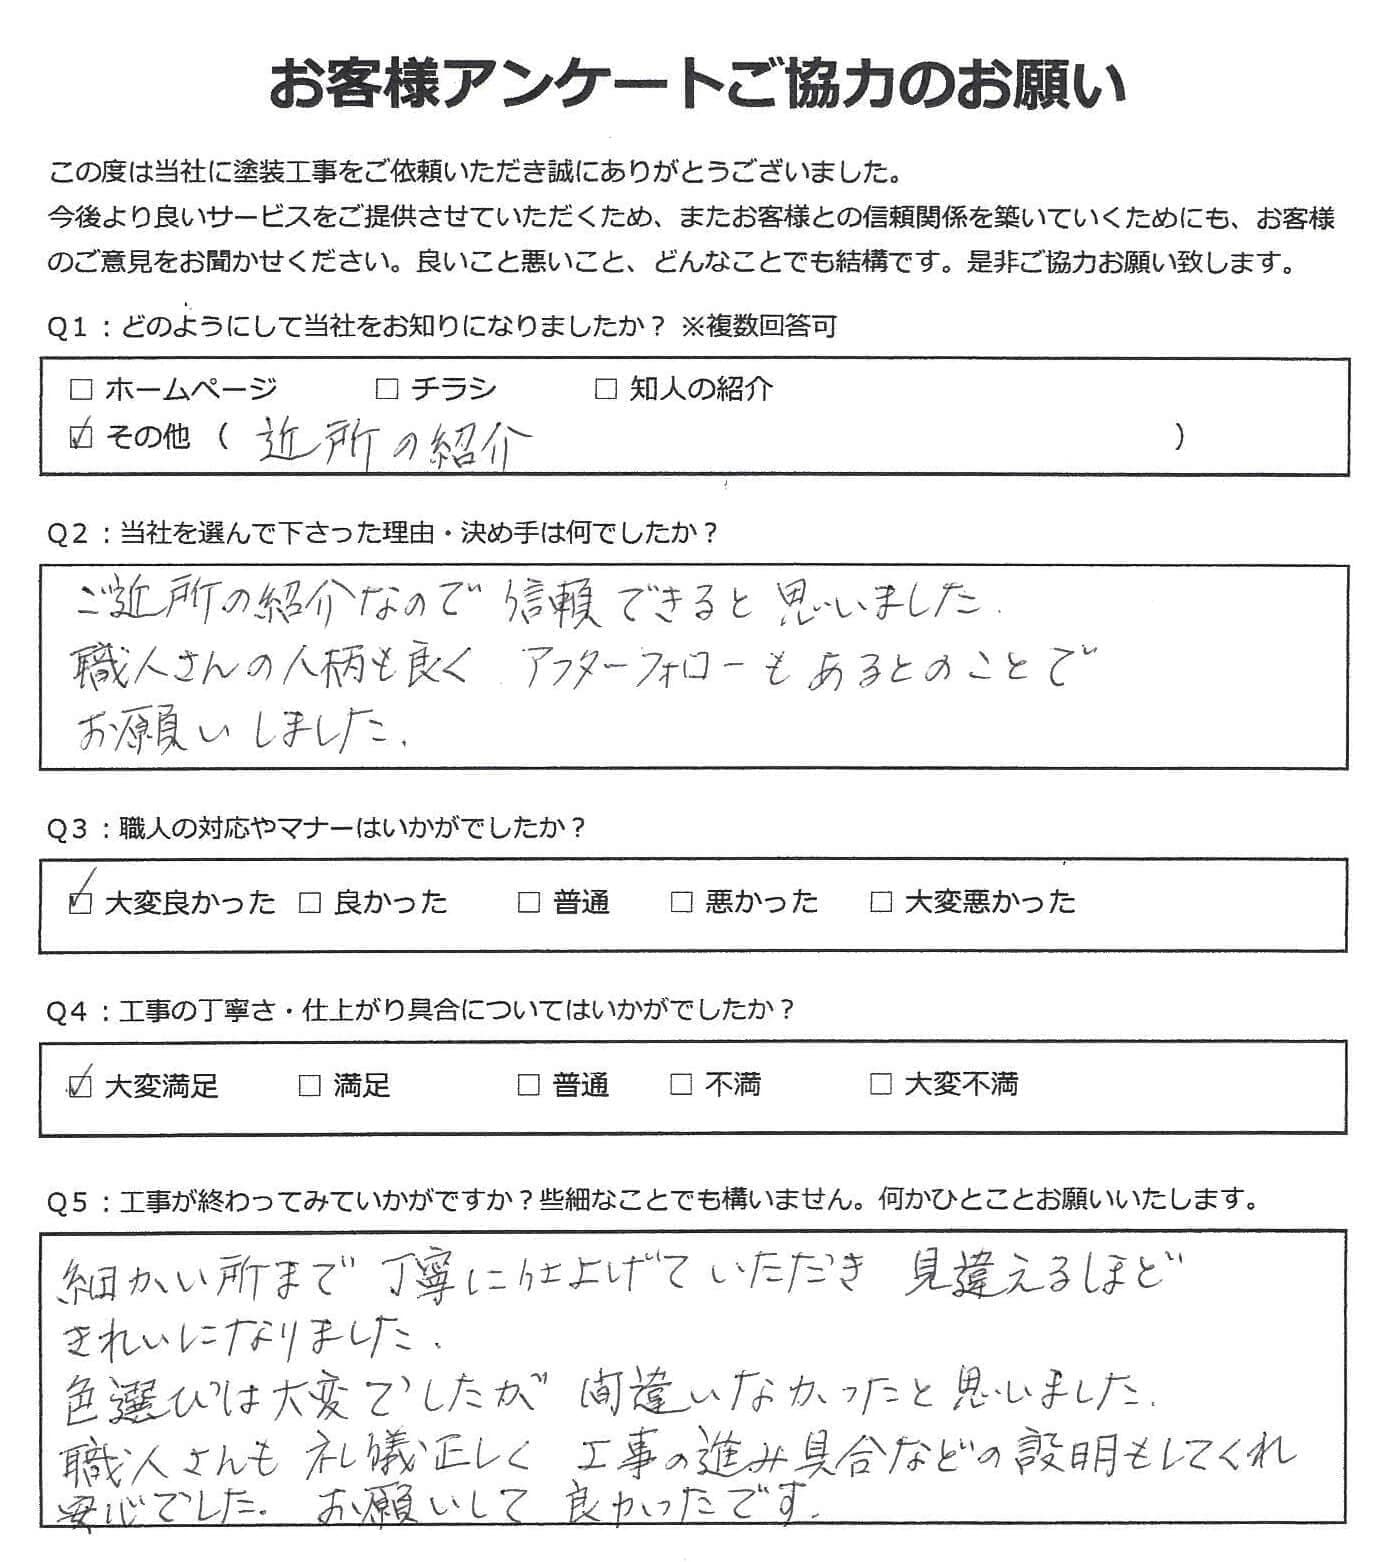 お客様アンケートご協力のお願い
この度は当社に塗装工事をご依頼いただき誠にありがとうございました。
今後より良いサービスをご提供させていただくため、またお客様との信頼関係を築いていくためにも、お客様
のご意見をお聞かせください。良いこと悪いこと、どんなことでも結構です。是非ご協力お願い致します。
Q1：どのようにして当社をお知りになりましたか？ ※複数回答可
□ ホームページ □ チラシ □ 知人の紹介
☑ その他（ 近所の紹介 ）
Q2：当社を選んで下さった理由・決め手は何でしたか？
ご近所の紹介なので 信頼できると思いました.
職人さんの人柄も良く アフターフォローもあるとのことで
お願いしました.
Q3：職人の対応やマナーはいかがでしたか？
☑ 大変良かった □ 良かった □ 普通 □ 悪かった □ 大変悪かった
Q4：工事の丁寧さ・仕上がり具合についてはいかがでしたか？
☑ 大変満足 □ 満足 □ 普通 □ 不満 □ 大変不満
Q5：工事が終わってみていかがですか？些細なことでも構いません。何かひとことお願いいたします。
細かい所まで 丁寧に仕上げていただき 見違えるほど
きれいになりました.
色選びは大変でしたが 間違いなかったと思いました.
職人さんも 礼儀正しく 工事の進み具合などの説明もしてくれ
安心でした. お願いして 良かったです.